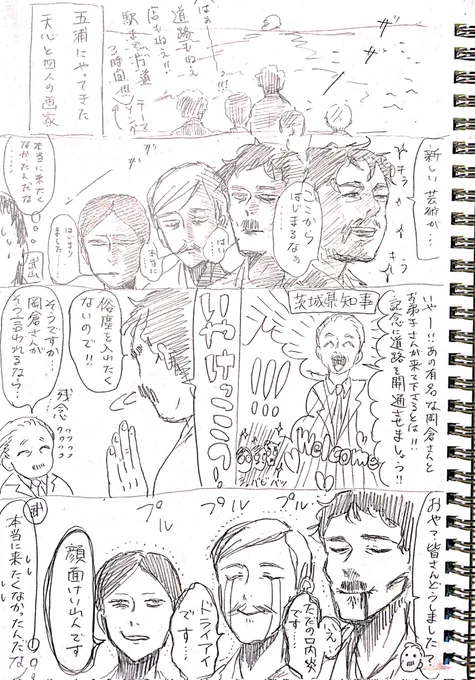 五浦にやってきた
天心と四人の画家
はぁ…!!!
道路もねぇ
店もねぇ!!
駅まで片道
3時間!!!
ザ…
ザ…
新しい芸術が…
キラ
キラ
ここから
はじまるなぁ
はい…
本当に
はじまり
ました……
本当に来たく
なかったんだな
茨城県知事
いやー!!あの有名な岡倉さんと
お弟子さんが来て下さるとは!!
記念に道路を開通させましょう!!
Welcome
!!!
いやけっこう!!
俗塵を入れたく
ないので!!
そうですか…
岡倉さんが
そう言われるなら…
残念
おや?皆さんどうしました?
プル
プル
プル
いえ
ただの口内炎
です…
ドライアイ
です…
顔面けいれんです
本当に来たくなかったんだな